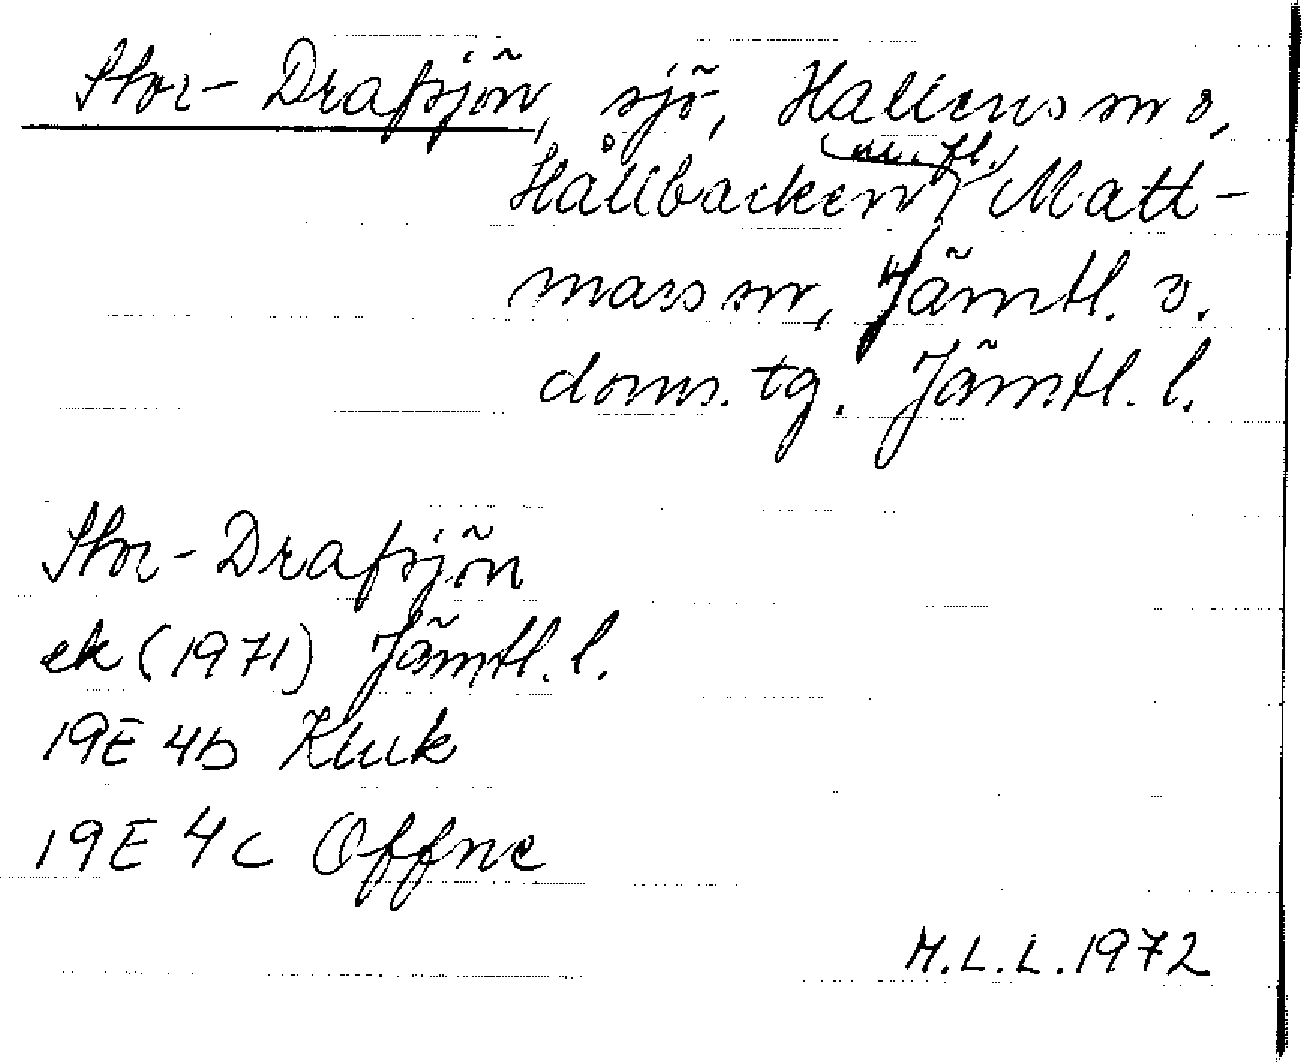 Stor-Drafsjön, sjö, Hallens sn o,
m. fl.
Hållbacken, Matt-
mars sn, Jämtl. v.
doms. tg. Jämtl. l.
Stor-Drafsjön
ek (1971) Jämtl. l.
19E 4b Kluk
19E 4c Offne
M.L.L. 1972